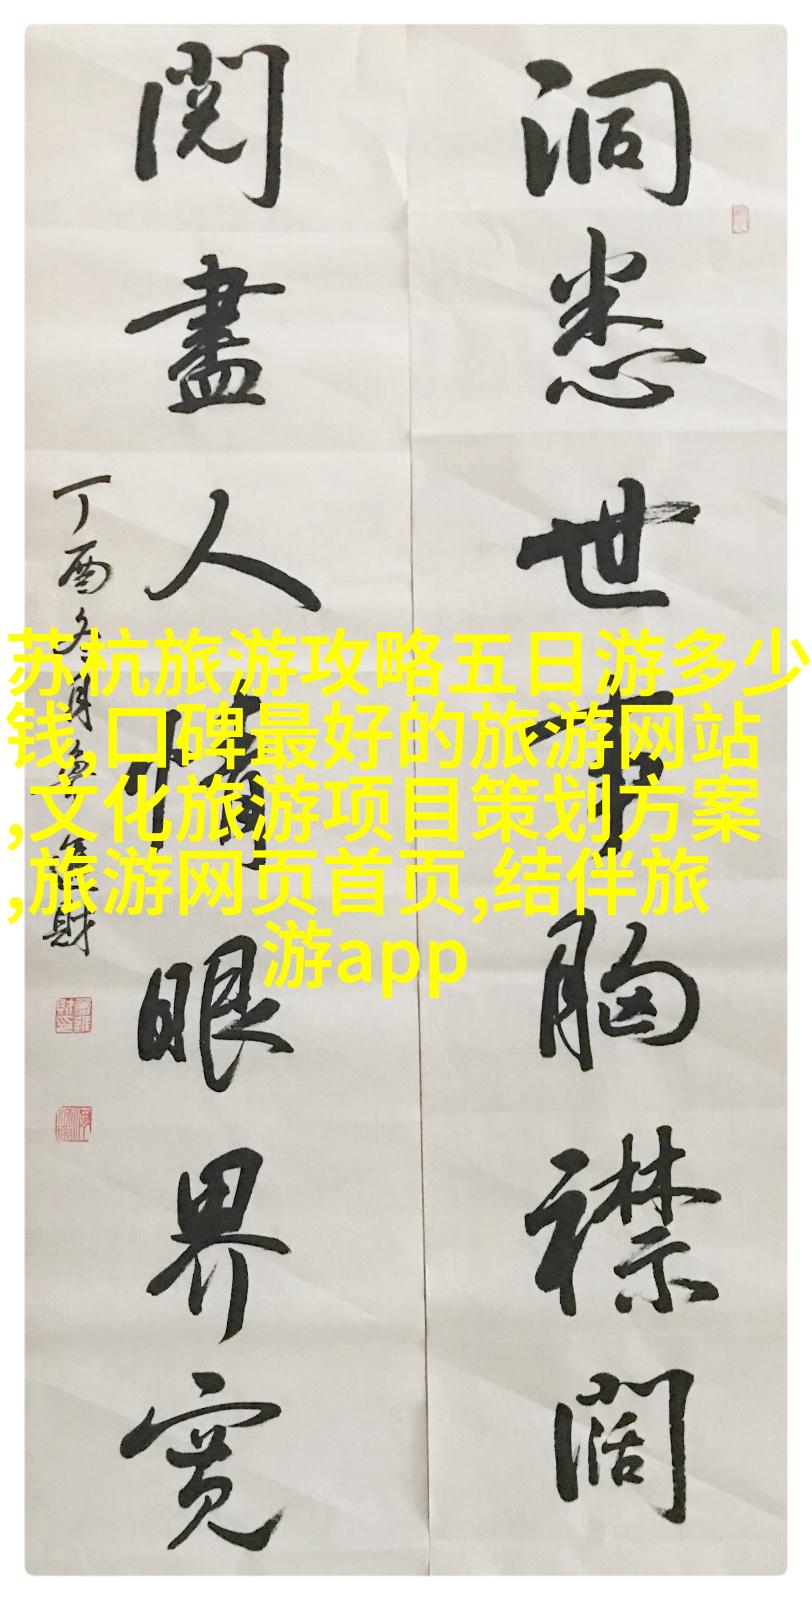 洞悉世事胸襟阔
閱盡人情眼界寬
丁酉冬月
財
苏杭旅游攻略五日游多少
钱,口碑最好的旅游网站
,文化旅游项目策划方案
,旅游网页首页,结伴旅
游app